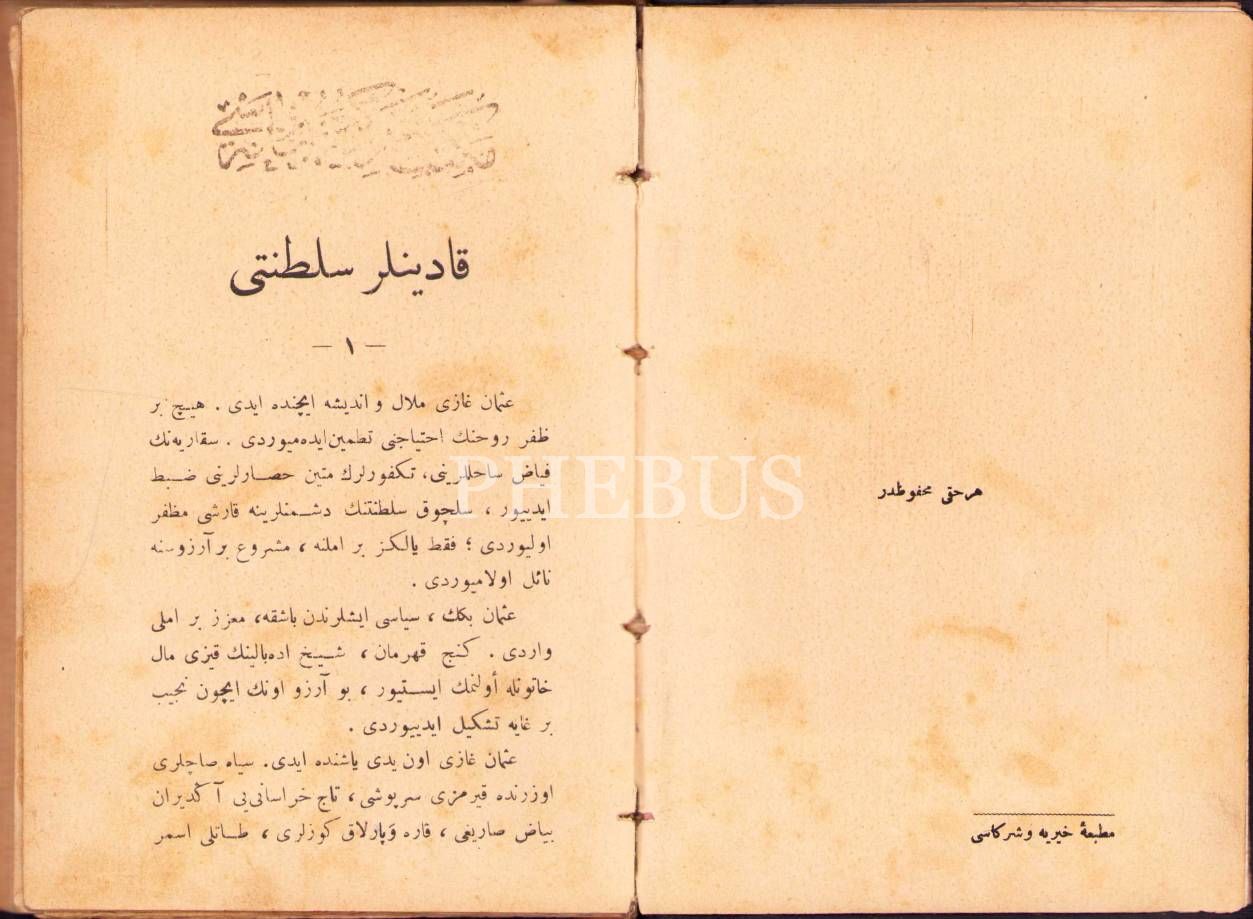 هر حقی محفوظدر
مطبعهٔ خیریه و شرکاسی
قادینلر سلطنتی
— ١ —
عثمان غازی ملال و اندیشه ایچنده ایدی . هیچ بر
ظفر روحنك احتیاجنی تطمین ایده‌میوردی . سقاریه‌نك
فیاض ساحللرینی، تكفورلرك متین حصارلرینی ضبط
ایدییور ، سلچوق سلطنتنك دشمنلرینه قارشی مظفر
اولیوردی ؛ فقط یالكز بر املنه ، مشروع بر آرزوسنه
نائل اولامیوردی .
عثمان بكك ، سیاسی ایشلرندن باشقه، معزز بر املی
واردی . كنج قهرمان ، شیخ اده‌بالینك قیزی مال
خاتونله أولنمك ایستیور ، بو آرزو اونك ایچون نجیب
بر غایه تشكیل ایدییوردی .
عثمان غازی اون یدی یاشنده ایدی. سیاه صاچلری
اوزرنده قیرمزی سرپوشی ، تاج خراسانی‌یی آكدیران
بیاض صاریغی ، قاره وپارلاق كوزلری ، طاتلی اسمر
PHEBUS